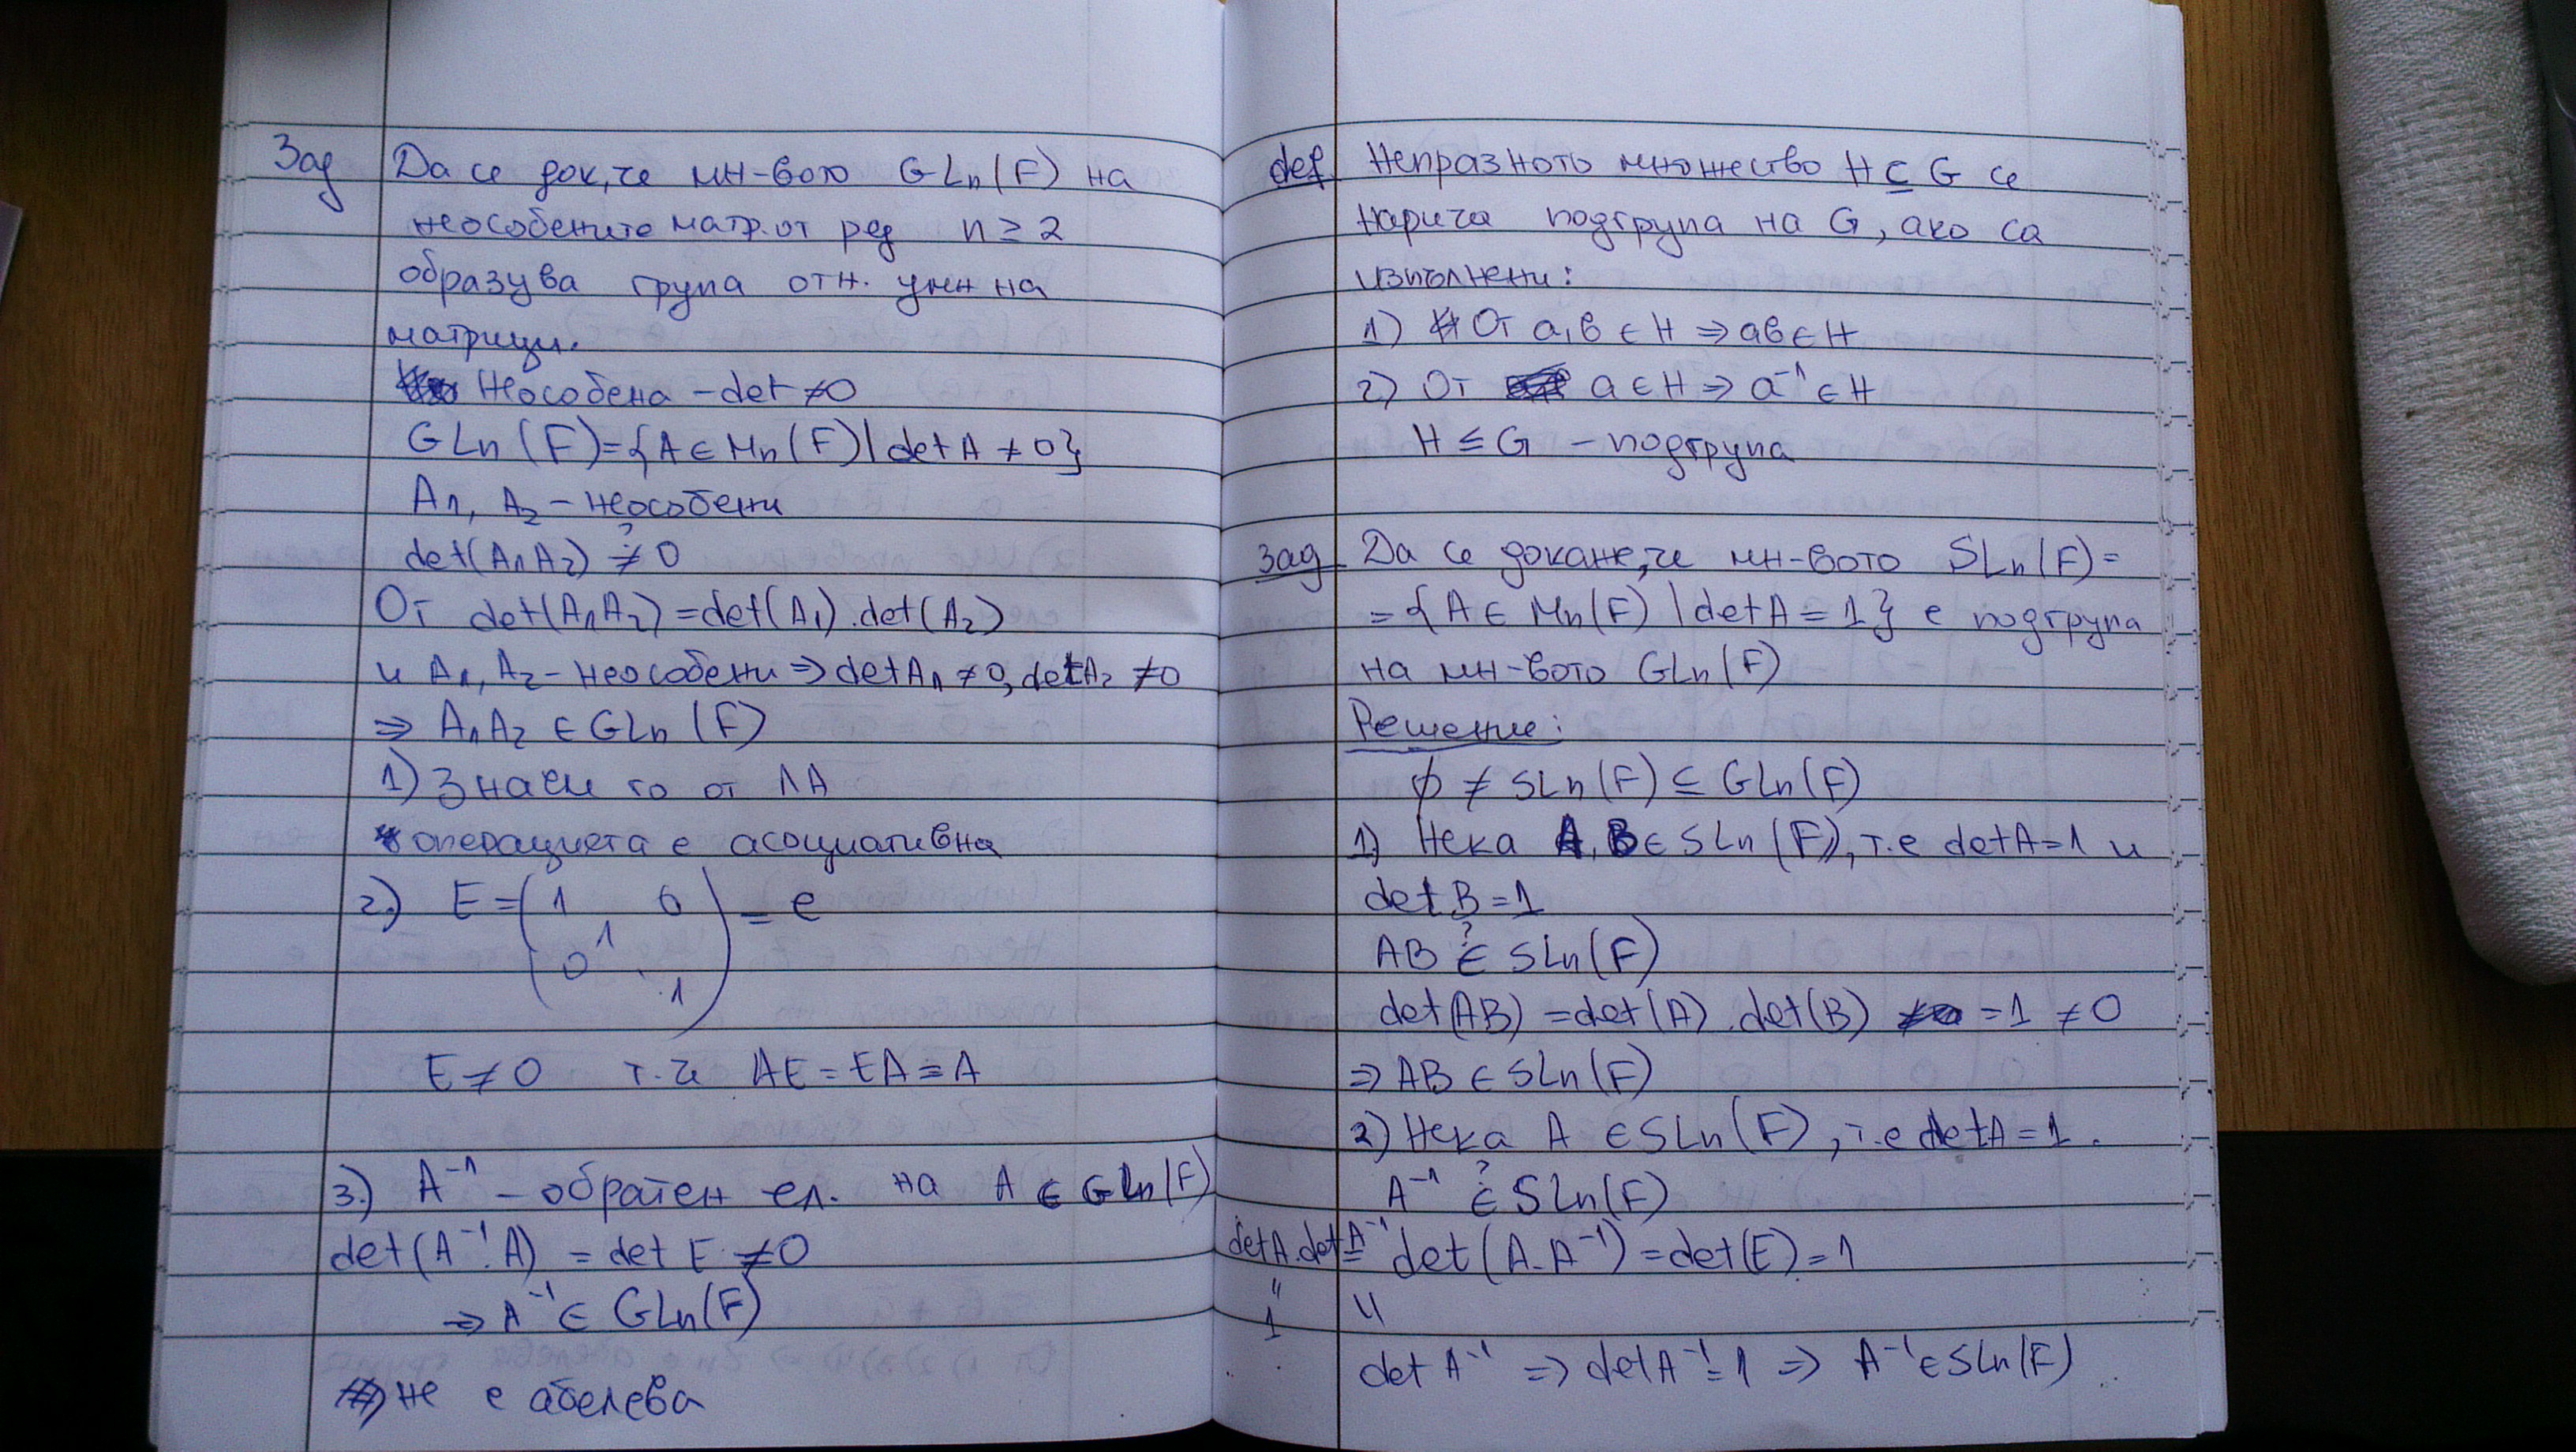 Зад Да се док, че мн-вото GLn(F) на
неособените матр. от ред n ≥ 2
образува група отн. умн на
матрици.
Неособена - det ≠ 0
GLn(F) = {A ∈ Mn(F) | det A ≠ 0}
A1, A2 - неособени
det(A1A2) ≠? 0
От det(A1A2) = det(A1).det(A2)
и A1, A2 - неособени ⇒ detA1 ≠ 0, detA2 ≠ 0
⇒ A1A2 ∈ GLn(F)
1) Знаем го от ЛА
операцията е асоциативна
2.) E = (1 0
1
0 .
. 1) = e
E ≠ 0 т.че AE = EA = A
3.) A⁻¹ - обратен ел. на A ∈ GLn(F)
det(A⁻¹.A) = det E ≠ 0
⇒ A⁻¹ ∈ GLn(F)
не е абелева
def Непразното множество H ⊆ G се
нарича подгрупа на G, ако са
изполнени:
1) От a, b ∈ H ⇒ ab ∈ H
2) От a ∈ H ⇒ a⁻¹ ∈ H
H ≤ G - подгрупа
Зад Да се докаже, че мн-вото SLn(F) =
= {A ∈ Mn(F) | det A = 1} е подгрупа
на мн-вото GLn(F)
Решение:
ϕ ≠ SLn(F) ⊆ GLn(F)
1) Нека A, B ∈ SLn(F), т.е detA = 1 и
det B = 1
AB ∈? SLn(F)
det(AB) = det(A).det(B) = 1 ≠ 0
⇒ AB ∈ SLn(F)
2) Нека A ∈ SLn(F), т.е detA = 1.
A⁻¹ ∈? SLn(F)
detA.detA⁻¹ = det(A.A⁻¹) = det(E) = 1
" и
1
det A⁻¹ ⇒ detA⁻¹ = 1 ⇒ A⁻¹ ∈ SLn(F)